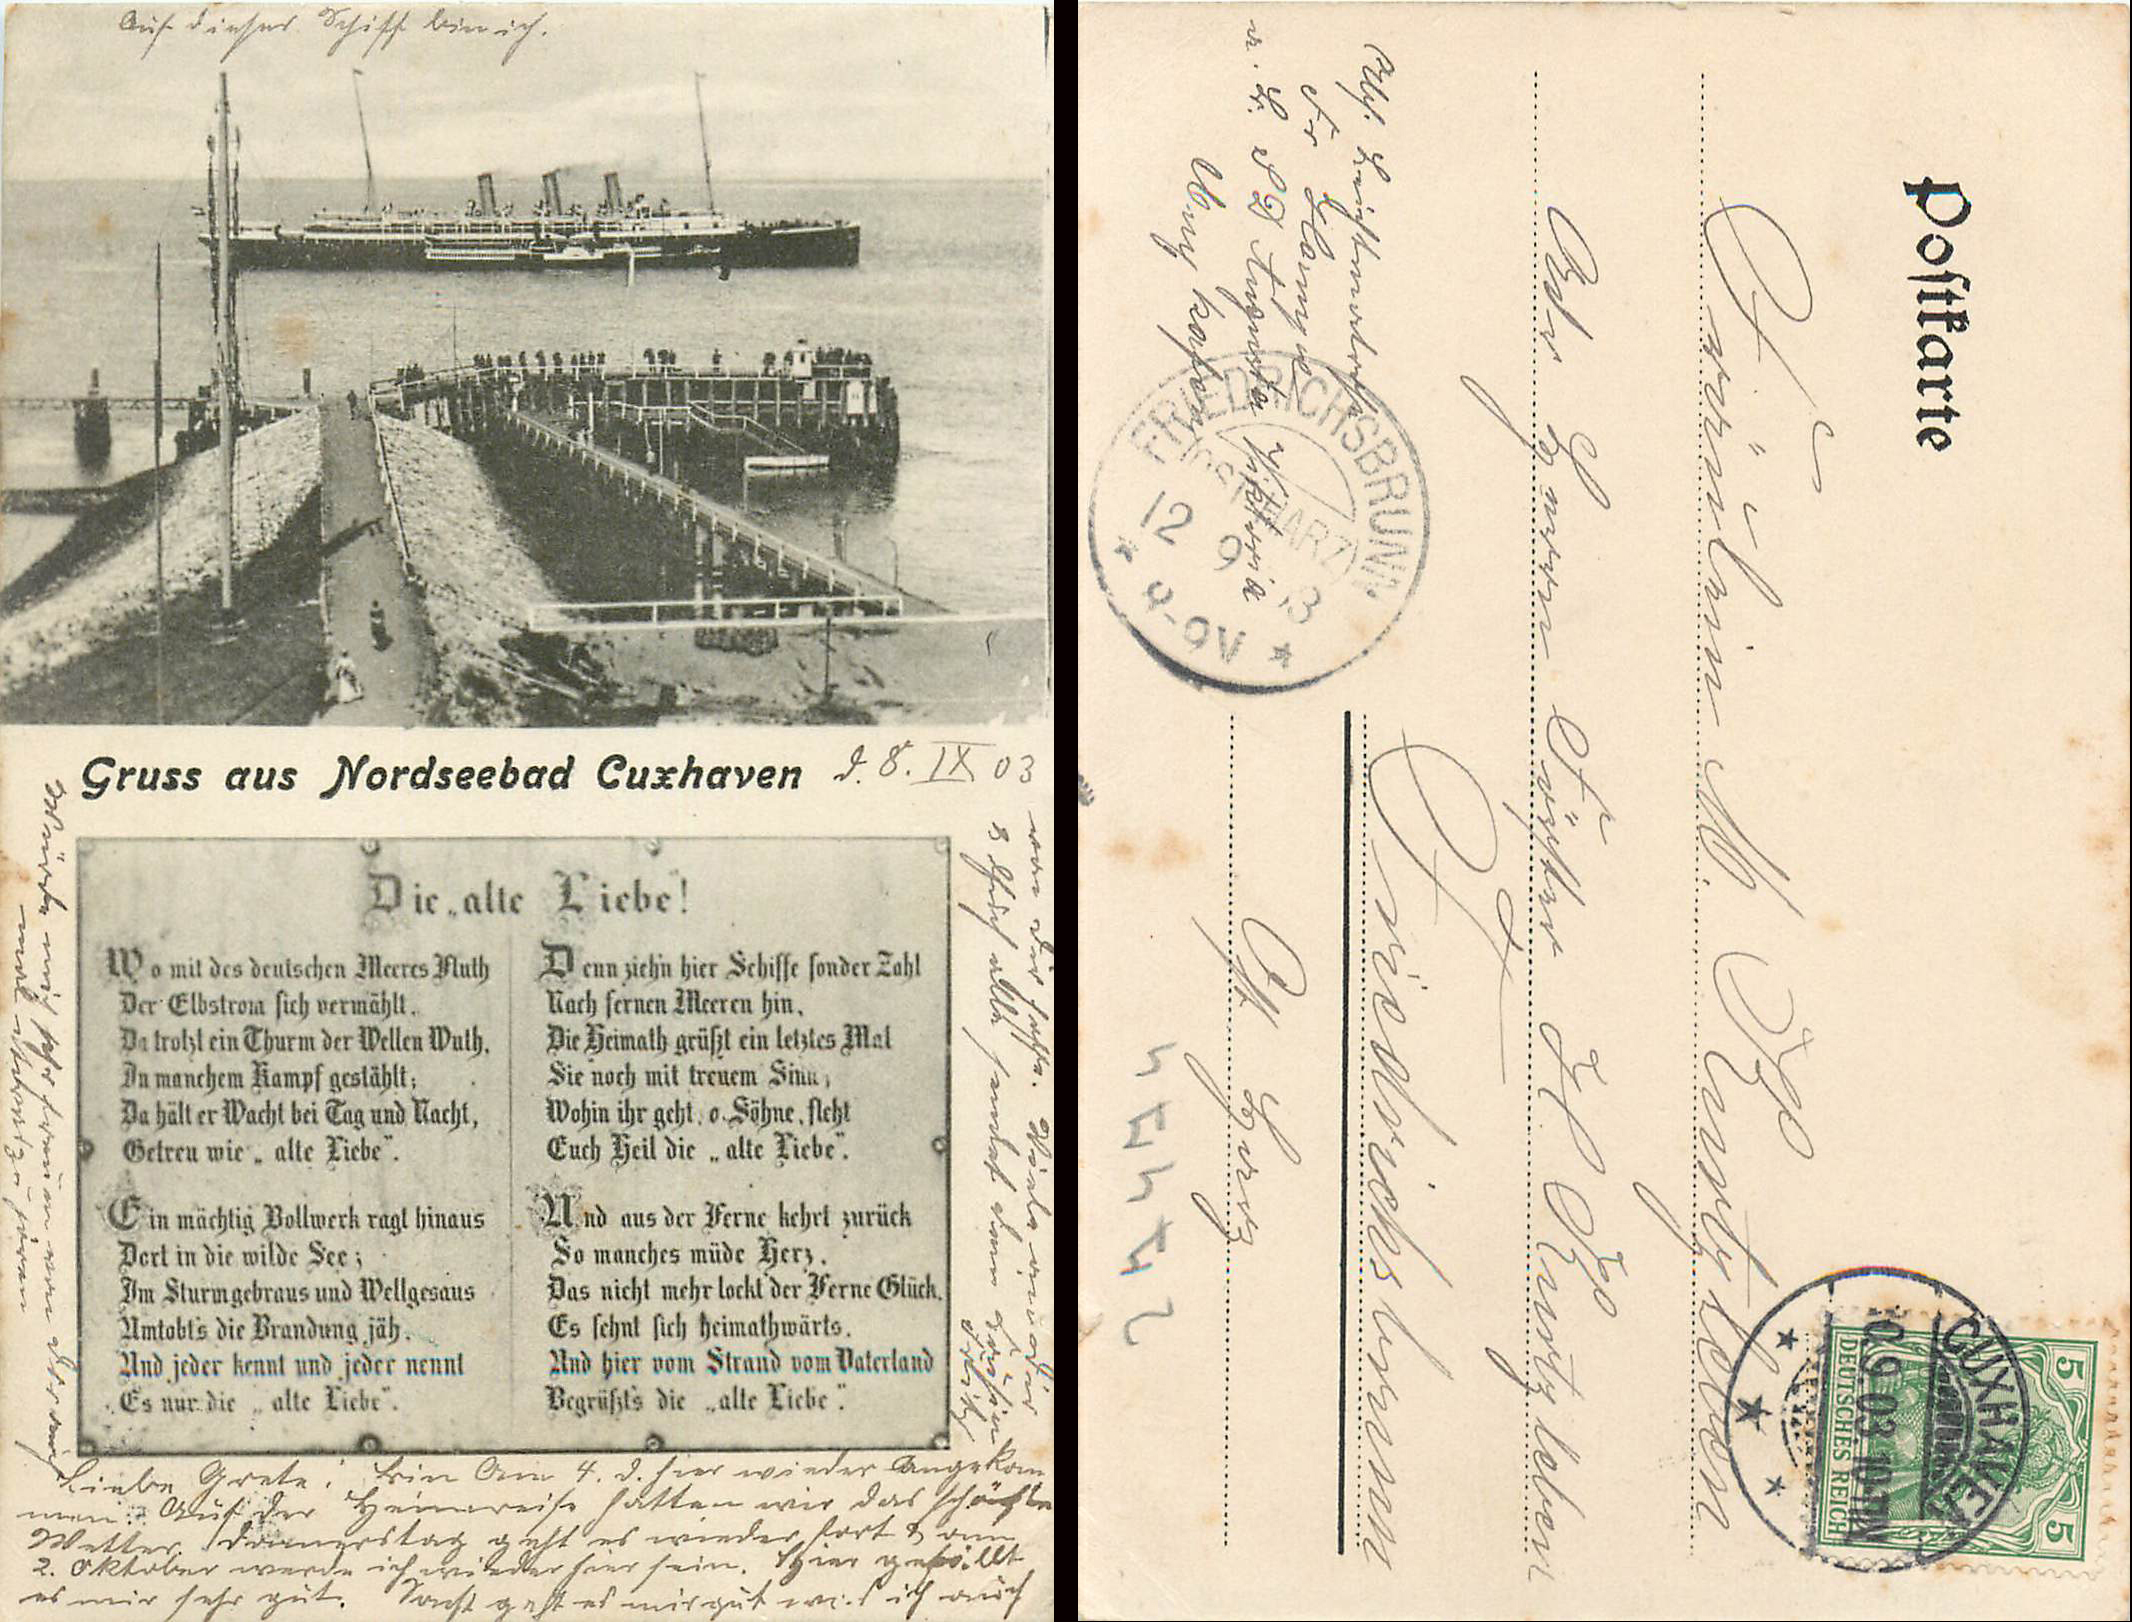 Auf dieser Schiff bin ich.
Gruss aus Nordseebad Cuxhaven d. 8. IX 03
Die „alte Liebe!
Wo mit des deutschen Meeres Fluth
Der Elbstrom sich vermählt,
Da trotzt ein Thurm der Wellen Wuth,
In manchem Kampf gestählt;
Da hält er Wacht bei Tag und Nacht,
Getreu wie „alte Liebe".
Ein mächtig Bollwerk ragt hinaus
Dort in die wilde See;
Im Sturmgebraus und Wellgesaus
Umtobt's die Brandung jäh.
Und jeder kennt und jeder nennt
Es nur die „alte Liebe".
Denn zieh'n hier Schiffe sonder Zahl
Nach fernen Meeren hin,
Die Heimath grüßt ein letztes Mal
Sie noch mit treuem Sinn,
Wohin ihr geht, o Söhne, fleht
Euch Heil die „alte Liebe".
Und aus der Ferne kehrt zurück
So manches müde Herz,
Das nicht mehr lockt der Ferne Glück,
Es sehnt sich heimathwärts.
Und hier vom Strand vom Vaterland
Begrüßt's die „alte Liebe".
Liebe Grete! Bin Am 4. d. hier wieder Angekom
men. Auf der Heimreise hatten wir das schönste
Wetter. Donnerstag geht es wieder fort & am
2. Oktober werde ich wieder hier sein. Hier gefällt
es mir sehr gut. Sonst geht es mir gut was ich auch
von Dir hoffe. Viele
Euch alle sendet Dein
Fritz
Würde mich sehr freuen von Dir auch
mal etwas zu hören
Postkarte
Fräulein M.
Adr Herrn Förster H
Friedrichsbrunn
Ost Harz
Abs.
Augusta Viktoria
Cuxhaven
FRIEDRICHSBRUNN
(OSTHARZ)
12 9 03
8-9V
CUXHAVEN
10.9.03.10-11N
DEUTSCHES REICH
5 5